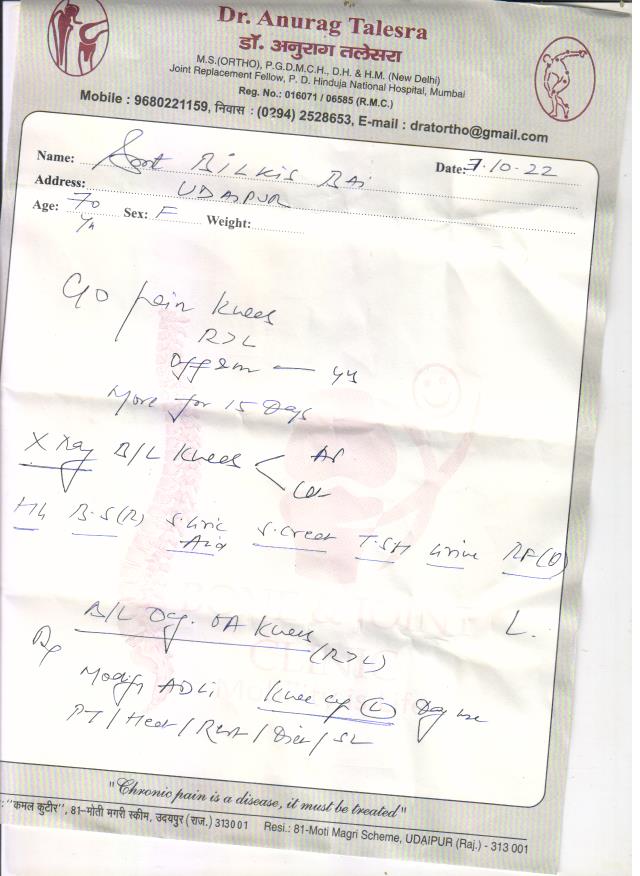 Dr. Anurag Talesra
डॉ. अनुराग तलेसरा
M.S.(ORTHO), P.G.D.M.C.H., D.H. & H.M. (New Delhi)
Joint Replacement Fellow, P. D. Hinduja National Hospital, Mumbai
Reg. No.: 016071 / 06585 (R.M.C.)
Mobile : 9680221159, निवास : (0294) 2528653, E-mail : dratortho@gmail.com
Name: BILKIS BAI Date: 7.10.22
Address: UDAIPUR
Age: 70 Sex: F Weight:
C/o pain Knees
R>L
More for 15 Days
X Ray B/L Knees < AP
B.S(R) S. Uric Acid S. Creat T.SH Urine RF(Q)
L.
B/L Deg. OA Knees
(R>L)
Modify ADLs Knee cap (L) Day use
PT / Heat / Rest / Diet / SL
BONE & JOINT
CLINIC
"Chronic pain is a disease, it must be treated"
: "कमल कुटीर", 81-मोती मगरी स्कीम, उदयपुर (राज.) 313001 Resi.: 81-Moti Magri Scheme, UDAIPUR (Raj.) - 313 001